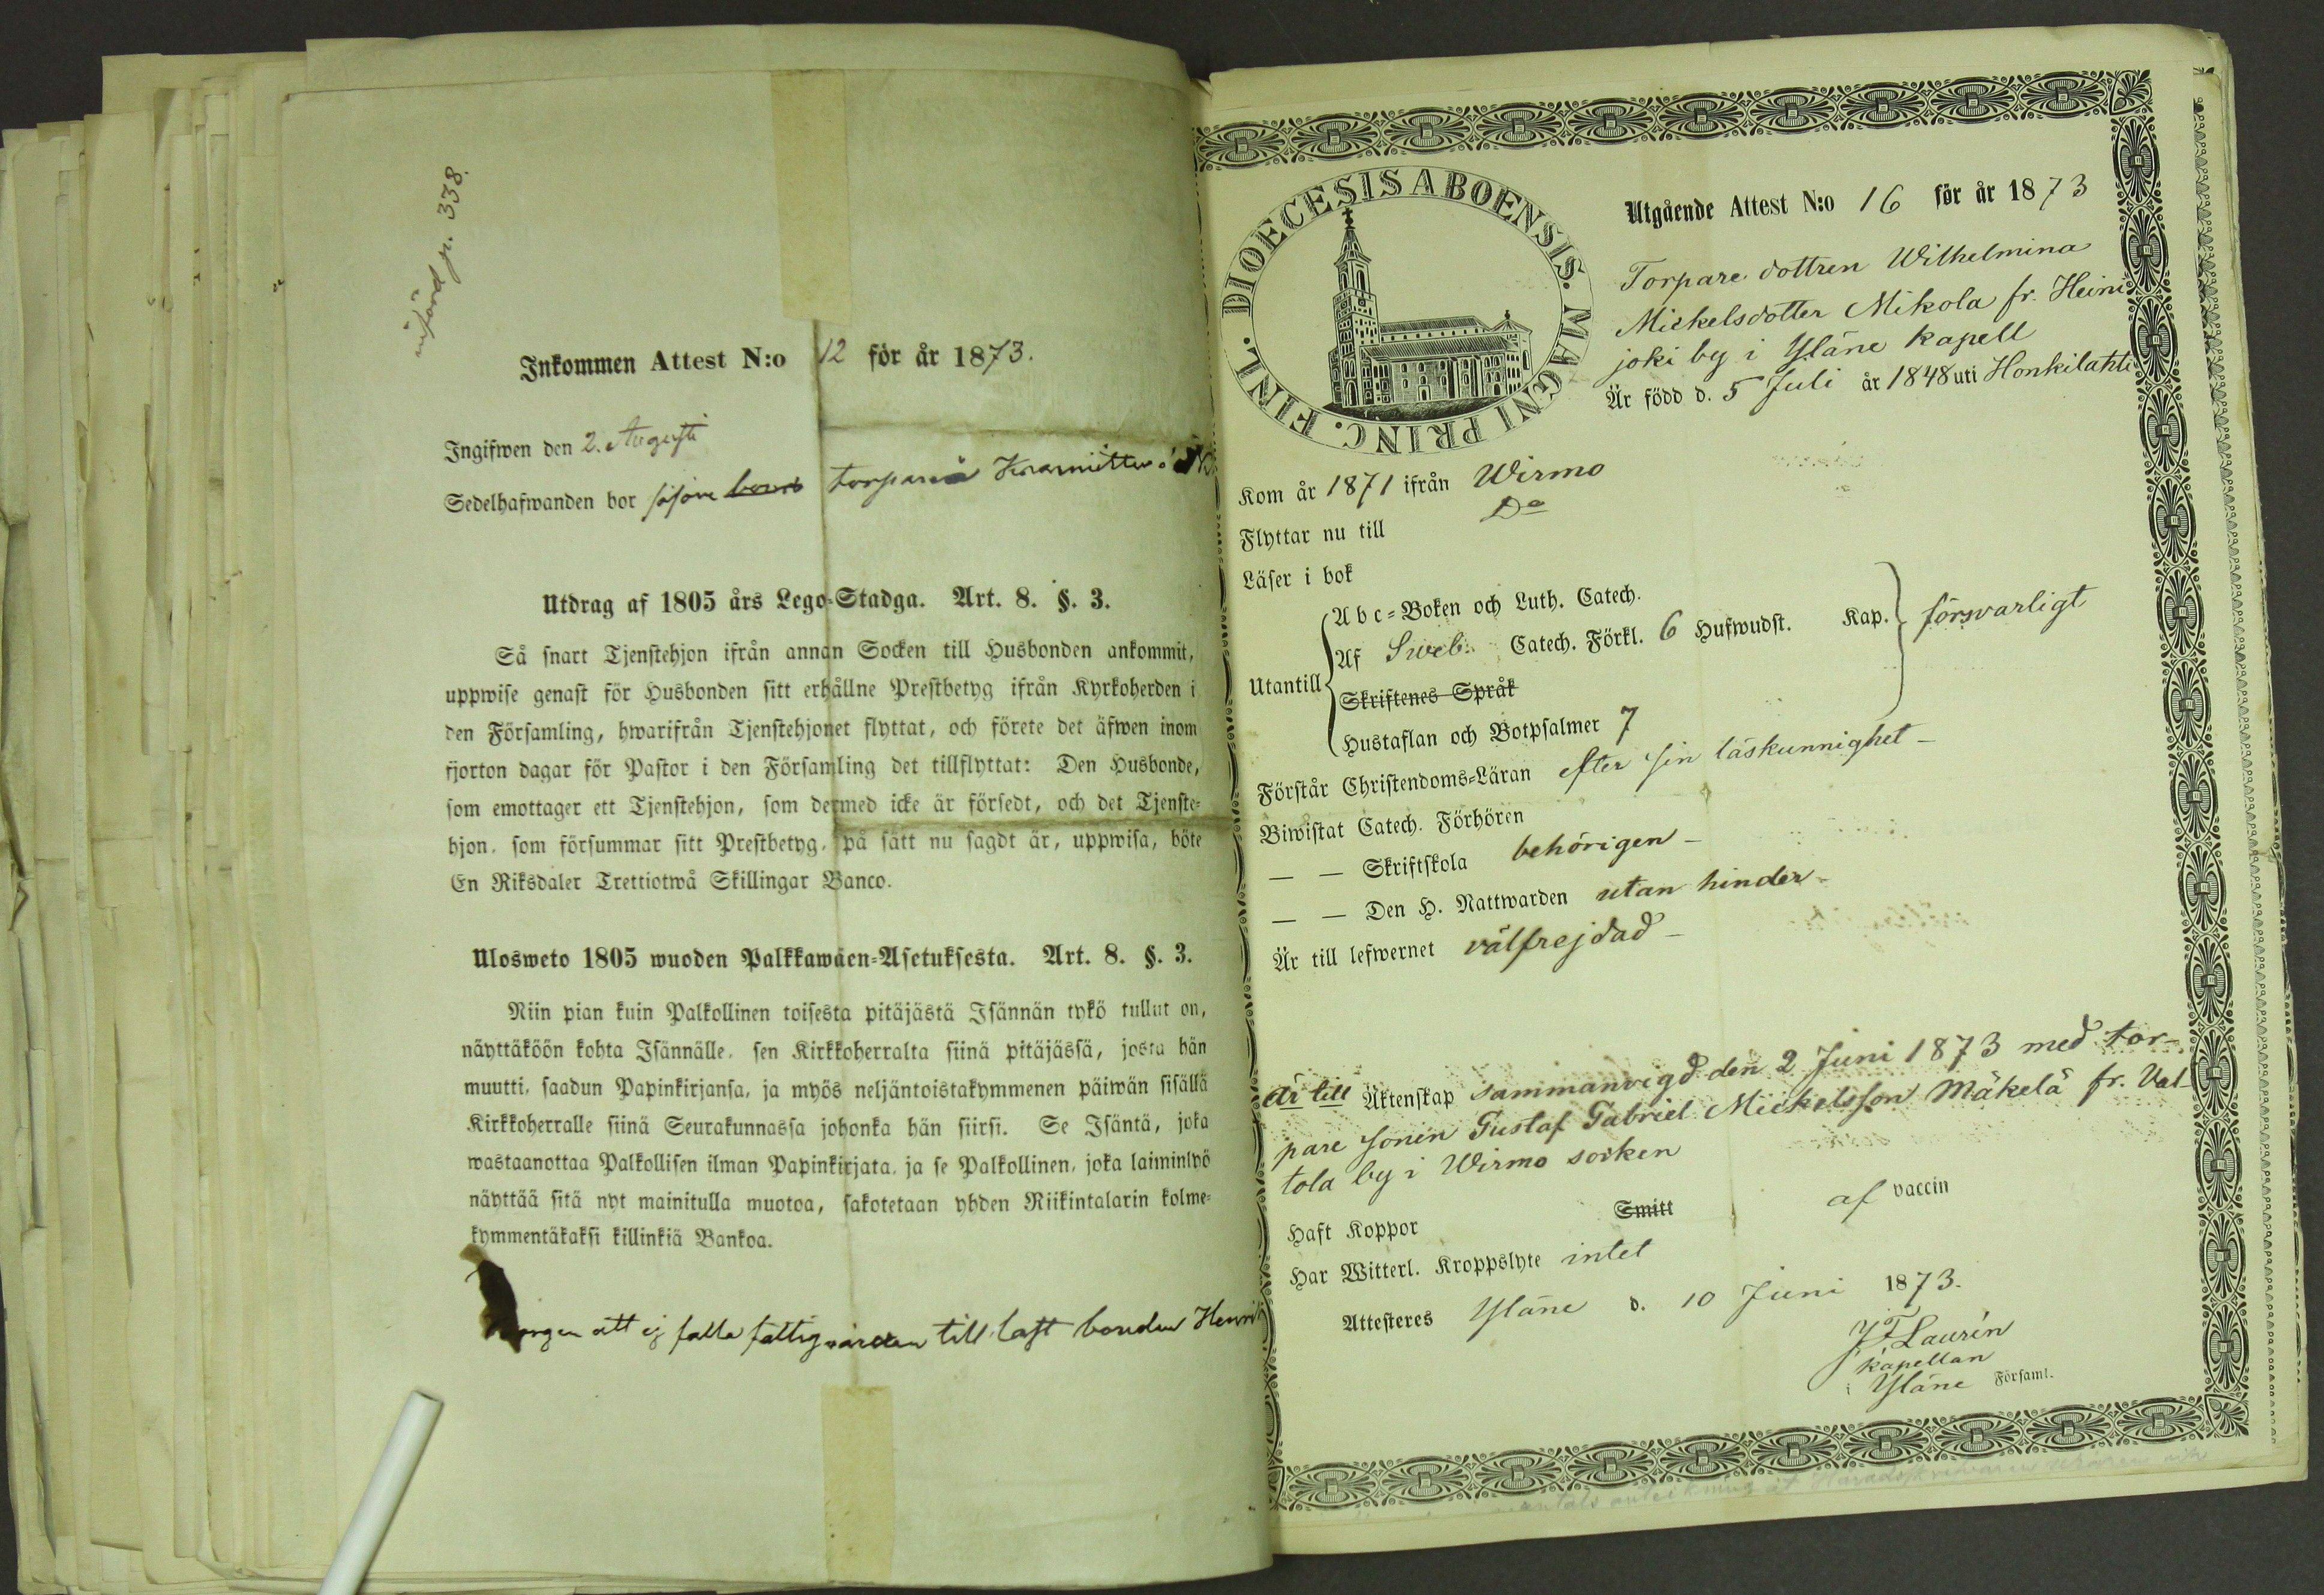 införd p. 338.
Inkommen Attest N:o 12 för år 1873.
Ingifwen den 2. Augusti
Sedelhafwanden bor
Utdrag af 1805 års Lego-Stadga. Art. 8. §. 3.
Så snart Tjenstehjon ifrån annan Socken till Husbonden ankommit,
uppwise genast för Husbonden sitt erhållne Prestbetyg ifrån Kyrkoherden i
den Församling, hwarifrån Tjenstehjonet flyttat, och förete det äfwen inom
fjorton dagar för Pastor i den Församling det tillflyttat: Den Husbonde,
som emottager ett Tjenstehjon, som dermed icke är försedt, och det Tjenste-
hjon, som försummar sitt Prestbetyg, på sätt nu sagdt är, uppwisa, böte
En Riksdaler Trettiotwå Skillingar Banco.
Ulosweto 1805 wuoden Palkkawäen-Asetuksesta. Art. 8. §. 3.
Niin pian kuin Palkollinen toisesta pitäjästä Isännän tykö tullut on,
näyttäköön kohta Isännälle, sen Kirkkoherralta siinä pitäjässä, josta hän
muutti, saadun Papinkirjansa, ja myös neljäntoistakymmenen päiwän sisällä
Kirkkoherralle siinä Seurakunnassa johonka hän siirsi. Se Isäntä, joka
wastaanottaa Palkollisen ilman Papinkirjata, ja se Palkollinen, joka laiminlyö
näyttää sitä nyt mainitulla muotoa, sakotetaan yhden Riikintalarin kolme-
kymmentäkaksi killinkiä Bankoa.
att ej falla fattigvården till last bonden Henrik
FINL. DIOECESIS ABOENSIS. MAGNI PRINC.
Utgående Attest N:o 16 för år 1873
Torpare dottren Wilhelmina
Mickelsdotter Mikola fr. Heini
joki by i Yläne kapell
Är född d. 5 Juli år 1848 uti Honkilahti
Kom år 1871 ifrån Wirmo
Flyttar nu till Do
Läser i bok
Utantill
Abc-Boken och Luth. Catech.
Af Sweb. Catech. Förkl. 6 Hufwudst. Kap. försvarligt
Skriftenes Språk
Hustaflan och Botpsalmer 7
Förstår Christendoms-Läran efter sin läskunnighet -
Biwistat Catech. Förhören
— — Skriftskola behörigen -
— — Den H. Nattwarden utan hinder -
Är till lefwernet välfrejdad -
Är till Äktenskap sammanvigd den 2 Juni 1873 med tor-
pare sonen Gustaf Gabriel Mickelsson Mäkelä fr. Val-
tola by i Wirmo socken
Haft Koppor Smitt af vaccin
Har Witterl. Kroppslyte intet
Attesteres Yläne d. 10 Juni 1873.
Laurén
kapellan
i Yläne Församl.